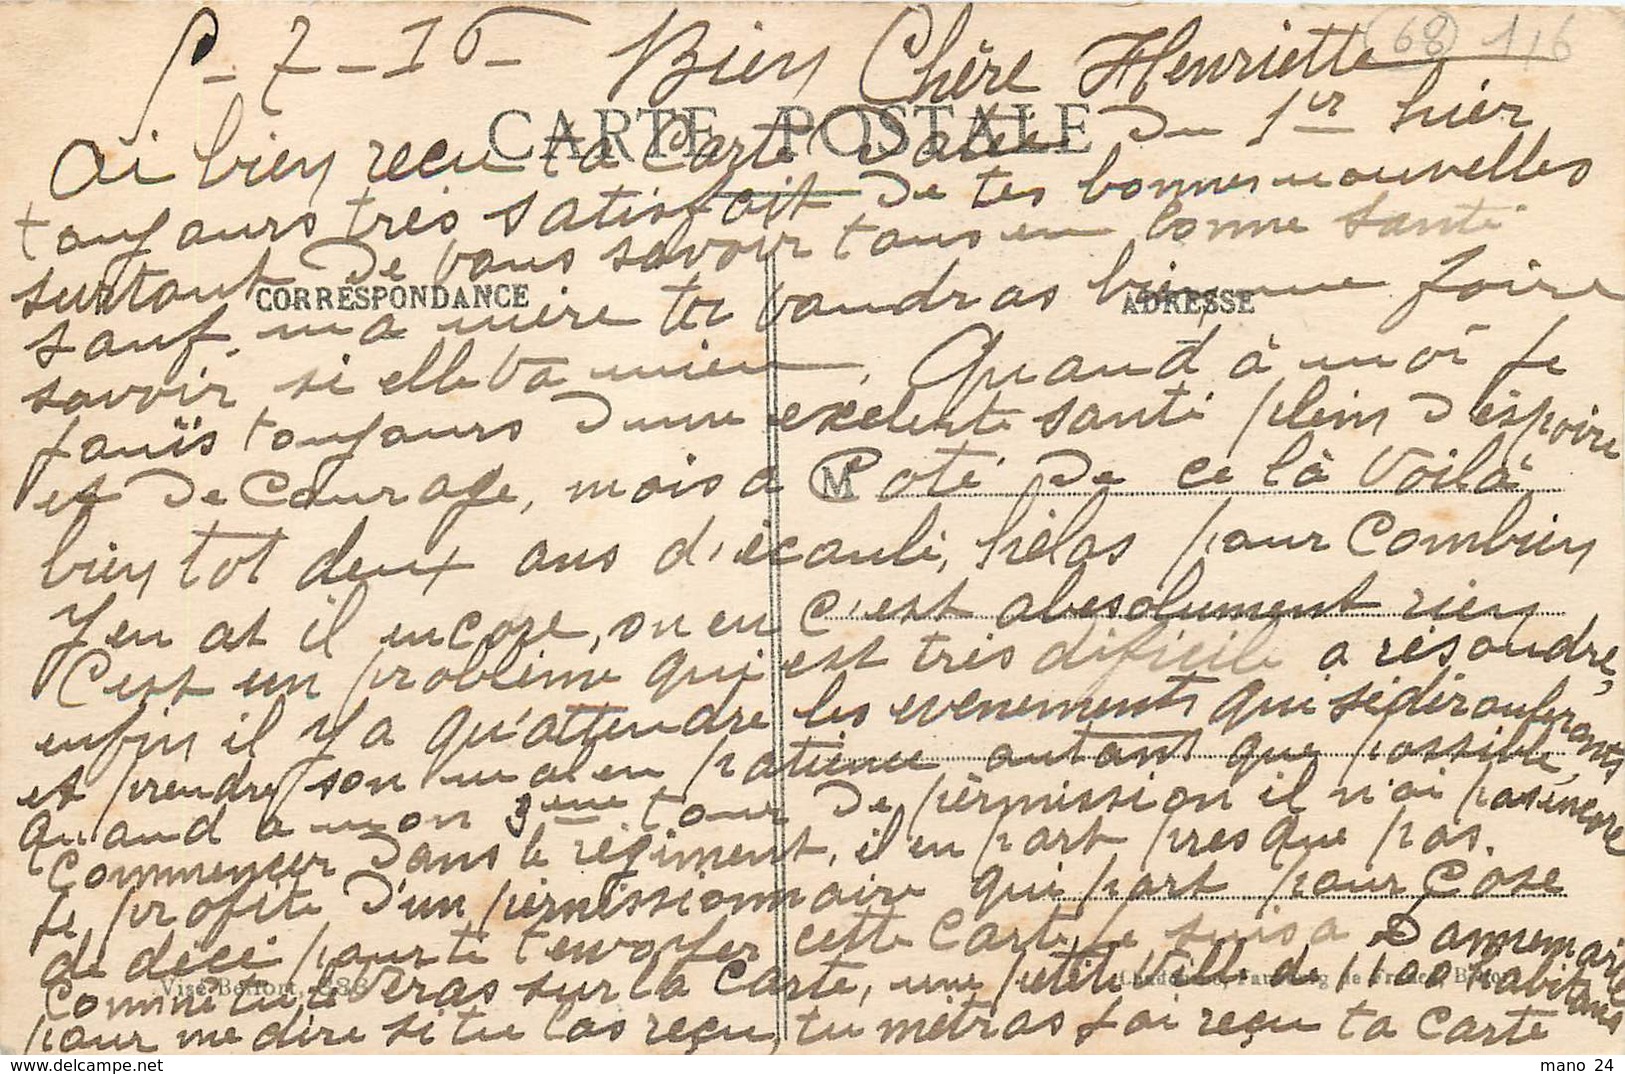 8-7-16- Bien Chère Henriette
68 116
CARTE POSTALE
Ai bien reçu ta Carte Datée Du 1er hier
toujours très satisfait De tes bonnes nouvelles
surtout De vous savoir tous en bonne santé
CORRESPONDANCE
ADRESSE
sauf ma mère tu voudras bien me faire
savoir si elle va mieu, Quand à moi je
jouïs toujours D'une exelente santé plein D'éspoire
et De Courage, mois a Coté De ce là Voilà
M
bien tot deux ans d'écoulé, hélas pour Combien
Y en at il encore, on en c'est abesolument rien
C'est un problème qui est très dificile a résoudre,
enfin il y a qu'attendre les evenements qui sédérouleronts
et prendre son mal en patience autant que possible,
quand a mon 3eme tour De pérmission il n'ai pas encore
Commencer Dans le régiment, il en part presque pas.
Je profite D'un pérmissionnaire qui part pour Cose
de décé pour te l'envoyer cette Carte je suis a Dannemarie
Comme tu le Veras sur la Carte, une petite Ville de 1100 habitans
Visé Belfort, 388
pour me dire si tu las reçu, tu métras J'ai reçu ta Carte
mano 24